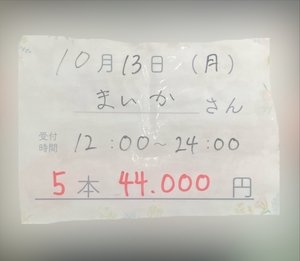 10月13日 (月)
まいか さん
受付時間 12:00〜24:00
5本 44.000円